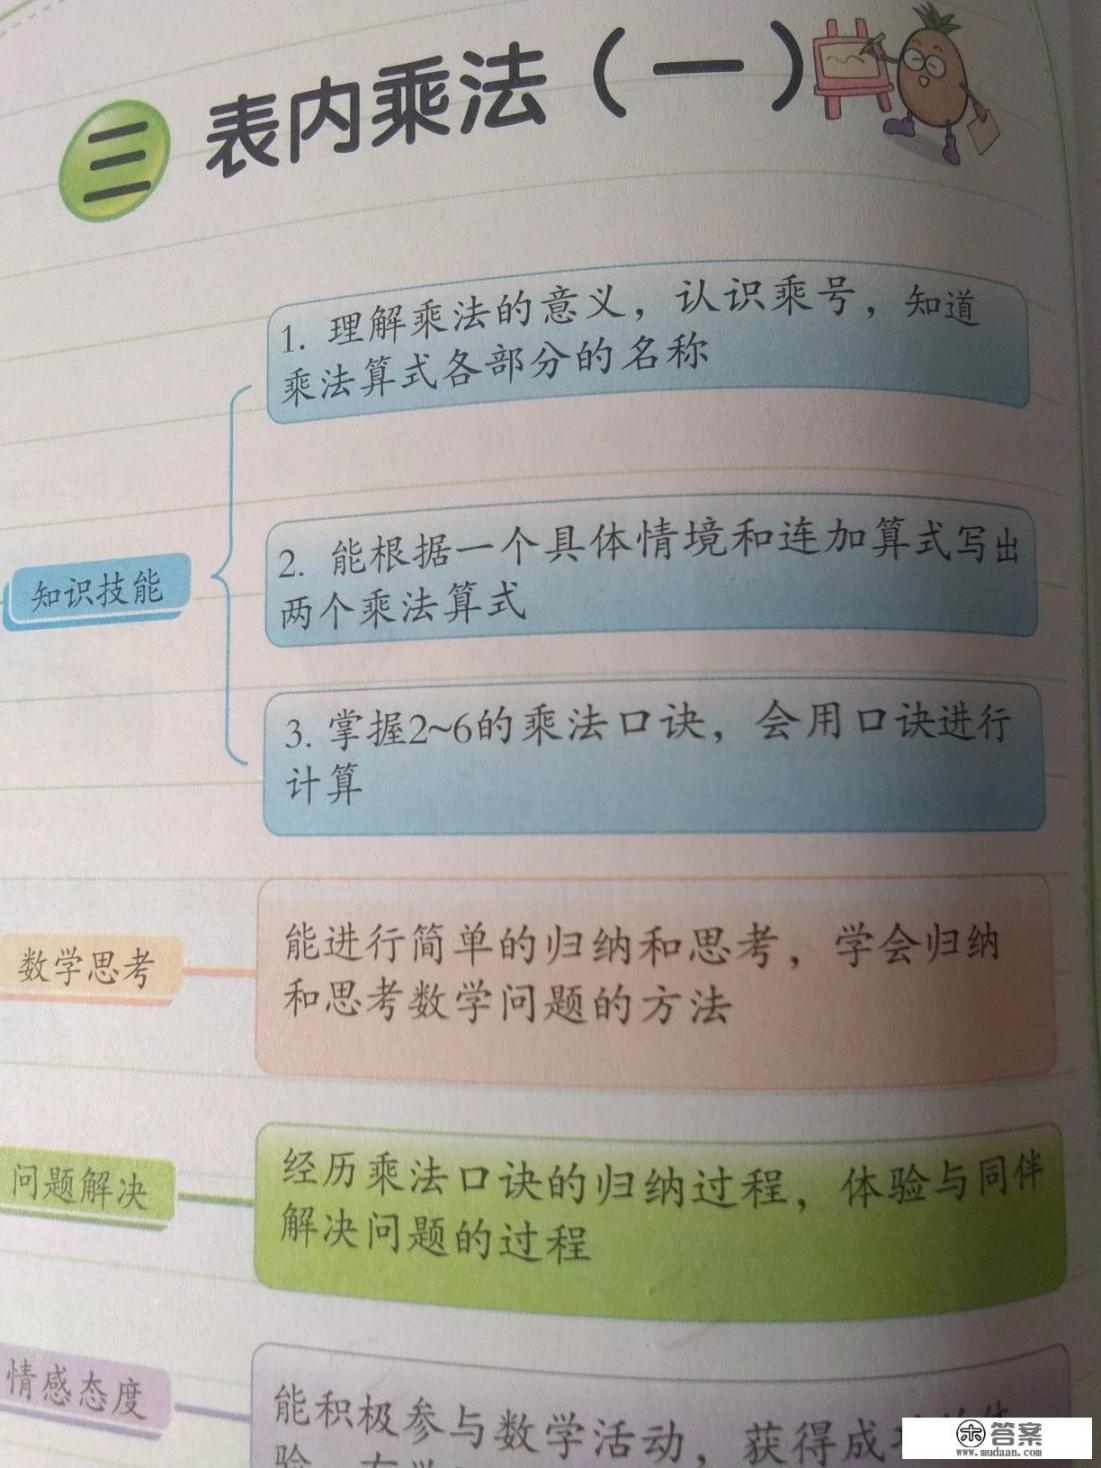 三 表内乘法（一）
1. 理解乘法的意义，认识乘号，知道
乘法算式各部分的名称
知识技能
2. 能根据一个具体情境和连加算式写出
两个乘法算式
3. 掌握2~6的乘法口诀，会用口诀进行
计算
数学思考
能进行简单的归纳和思考，学会归纳
和思考数学问题的方法
问题解决
经历乘法口诀的归纳过程，体验与同伴
解决问题的过程
情感态度
能积极参与数学活动，获得成
答案
www.mudaan.com